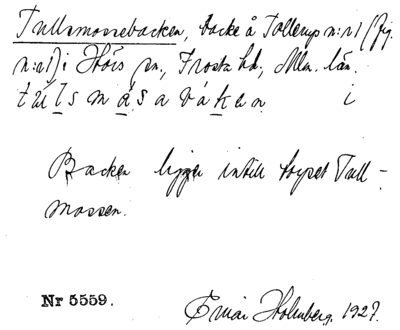 Tullsmossebacken, backe å Tollerup n:r 1 (fig.
n:r 1) i Höörs sn, Frosta hd, Mlm. län.
túlsmåsabákan i
Backen ligger intill torpet Tull-
mossen.
Nr 5559.
Ernst Holmberg. 1927.